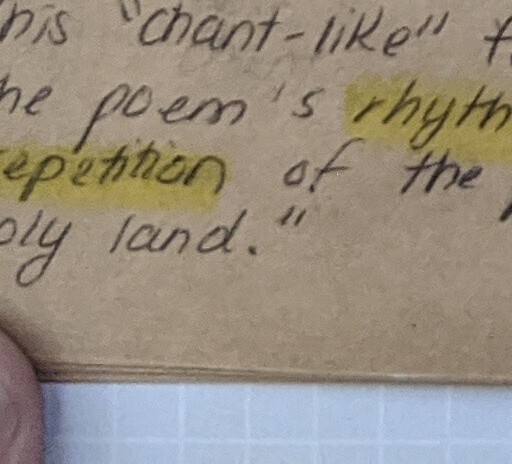 his "chant-like" f
he poem's rhyth
epetition of the
oly land."